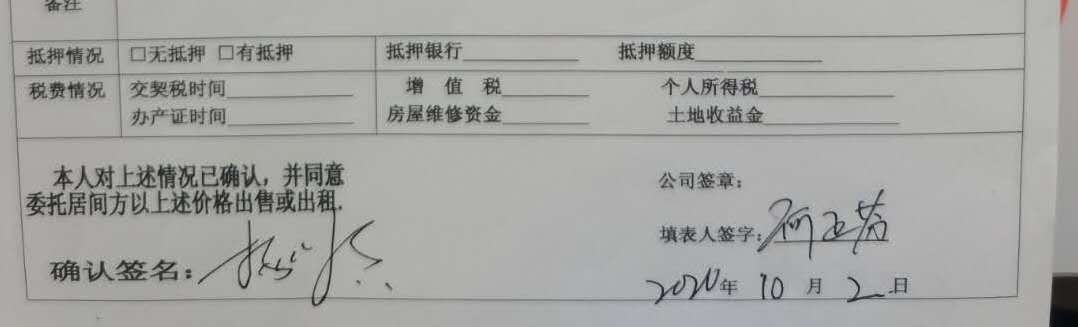 备注
抵押情况 □无抵押 □有抵押 抵押银行__________ 抵押额度__________
税费情况 交契税时间__________ 增 值 税__________ 个人所得税__________
办产证时间__________ 房屋维修资金__________ 土地收益金__________
本人对上述情况已确认，并同意
委托居间方以上述价格出售或出租.
公司签章：
填表人签字：
确认签名：
2020年 10 月 2 日